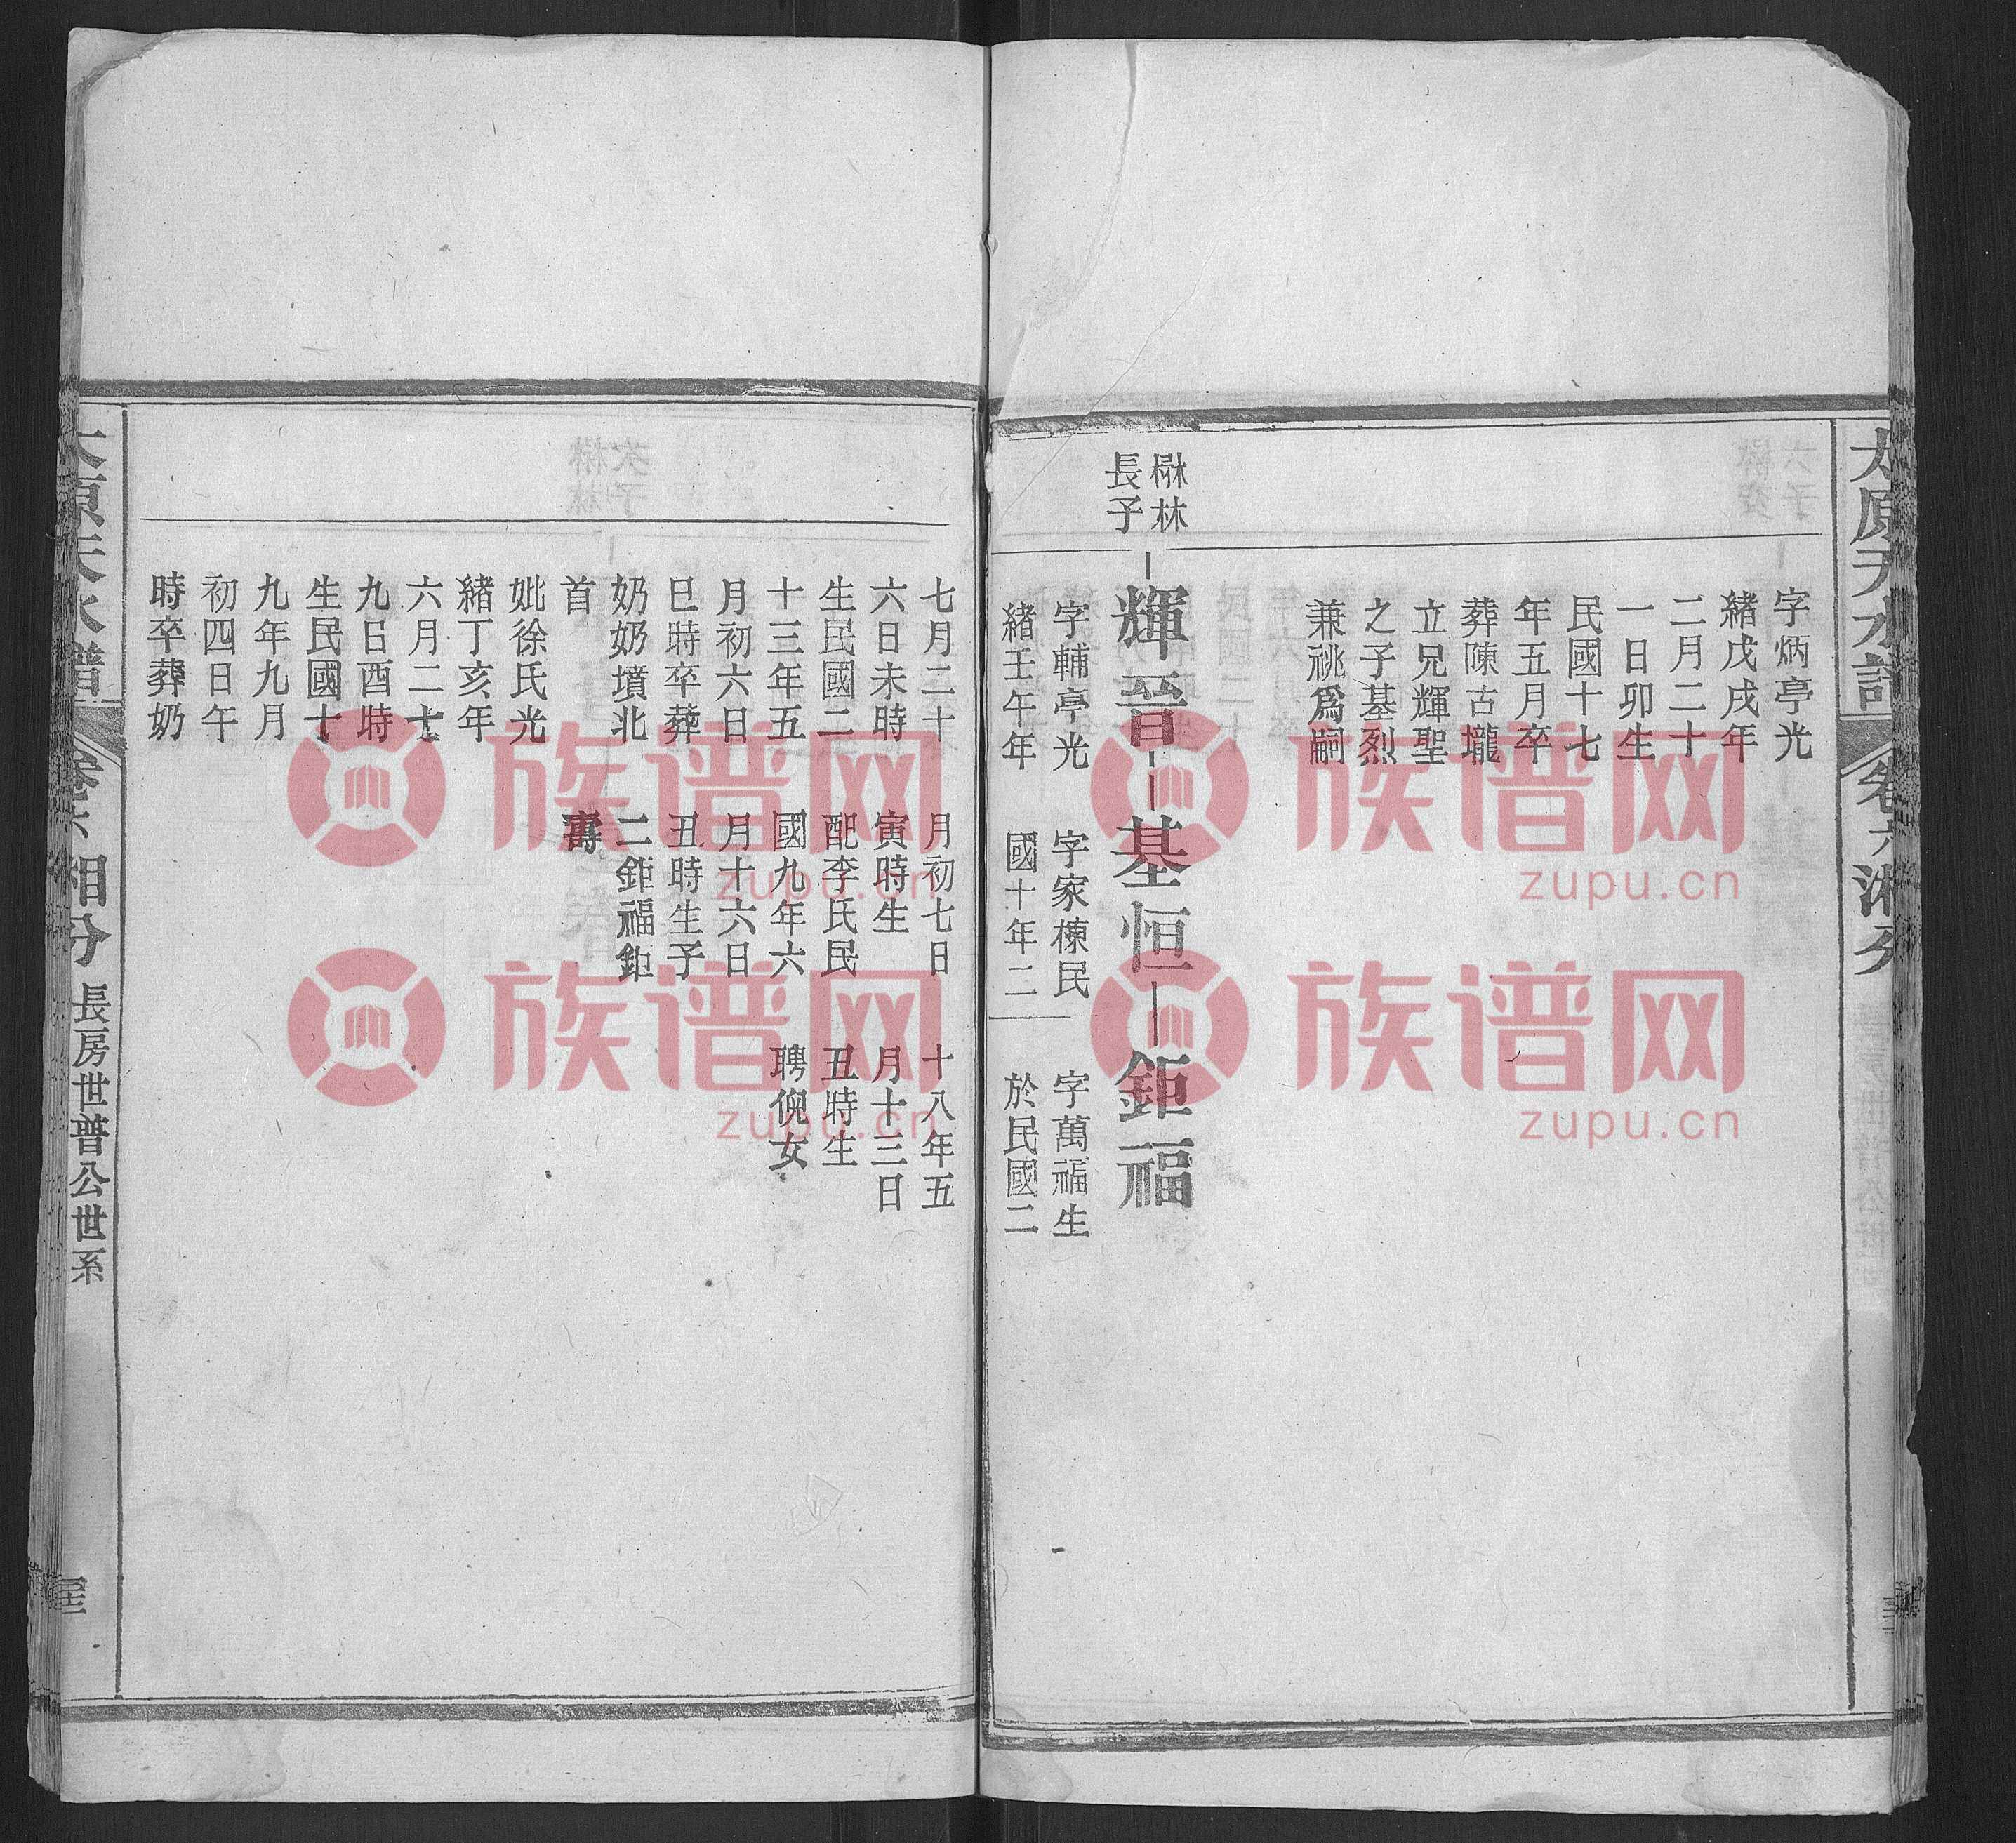 字炳亭光
緒戊戌年
二月二十
一日卯生
民國十七
年五月卒
葬陳古壠
立兄輝聖
之子基烈
兼祧爲嗣
楙林
長子
輝晉
基恒
鉅福
字輔亭光
緒壬午年
字家棟民
國十年二
字萬福生
於民國二
七月二十
六日未時
生民國二
十三年五
月初六日
巳時卒葬
奶奶墳北
首
妣徐氏光
緒丁亥年
六月二十
九日酉時
生民國十
九年九月
初四日午
時卒葬奶
月初七日
寅時生
配李氏民
國九年六
月十六日
丑時生子
二鉅福鉅
壽
十八年五
月十三日
丑時生
聘倪女
太原天水譜
卷六 湘分
長房世普公世系
族谱网
zupu.cn
族谱网
zupu.cn
族谱网
zupu.cn
族谱网
zupu.cn